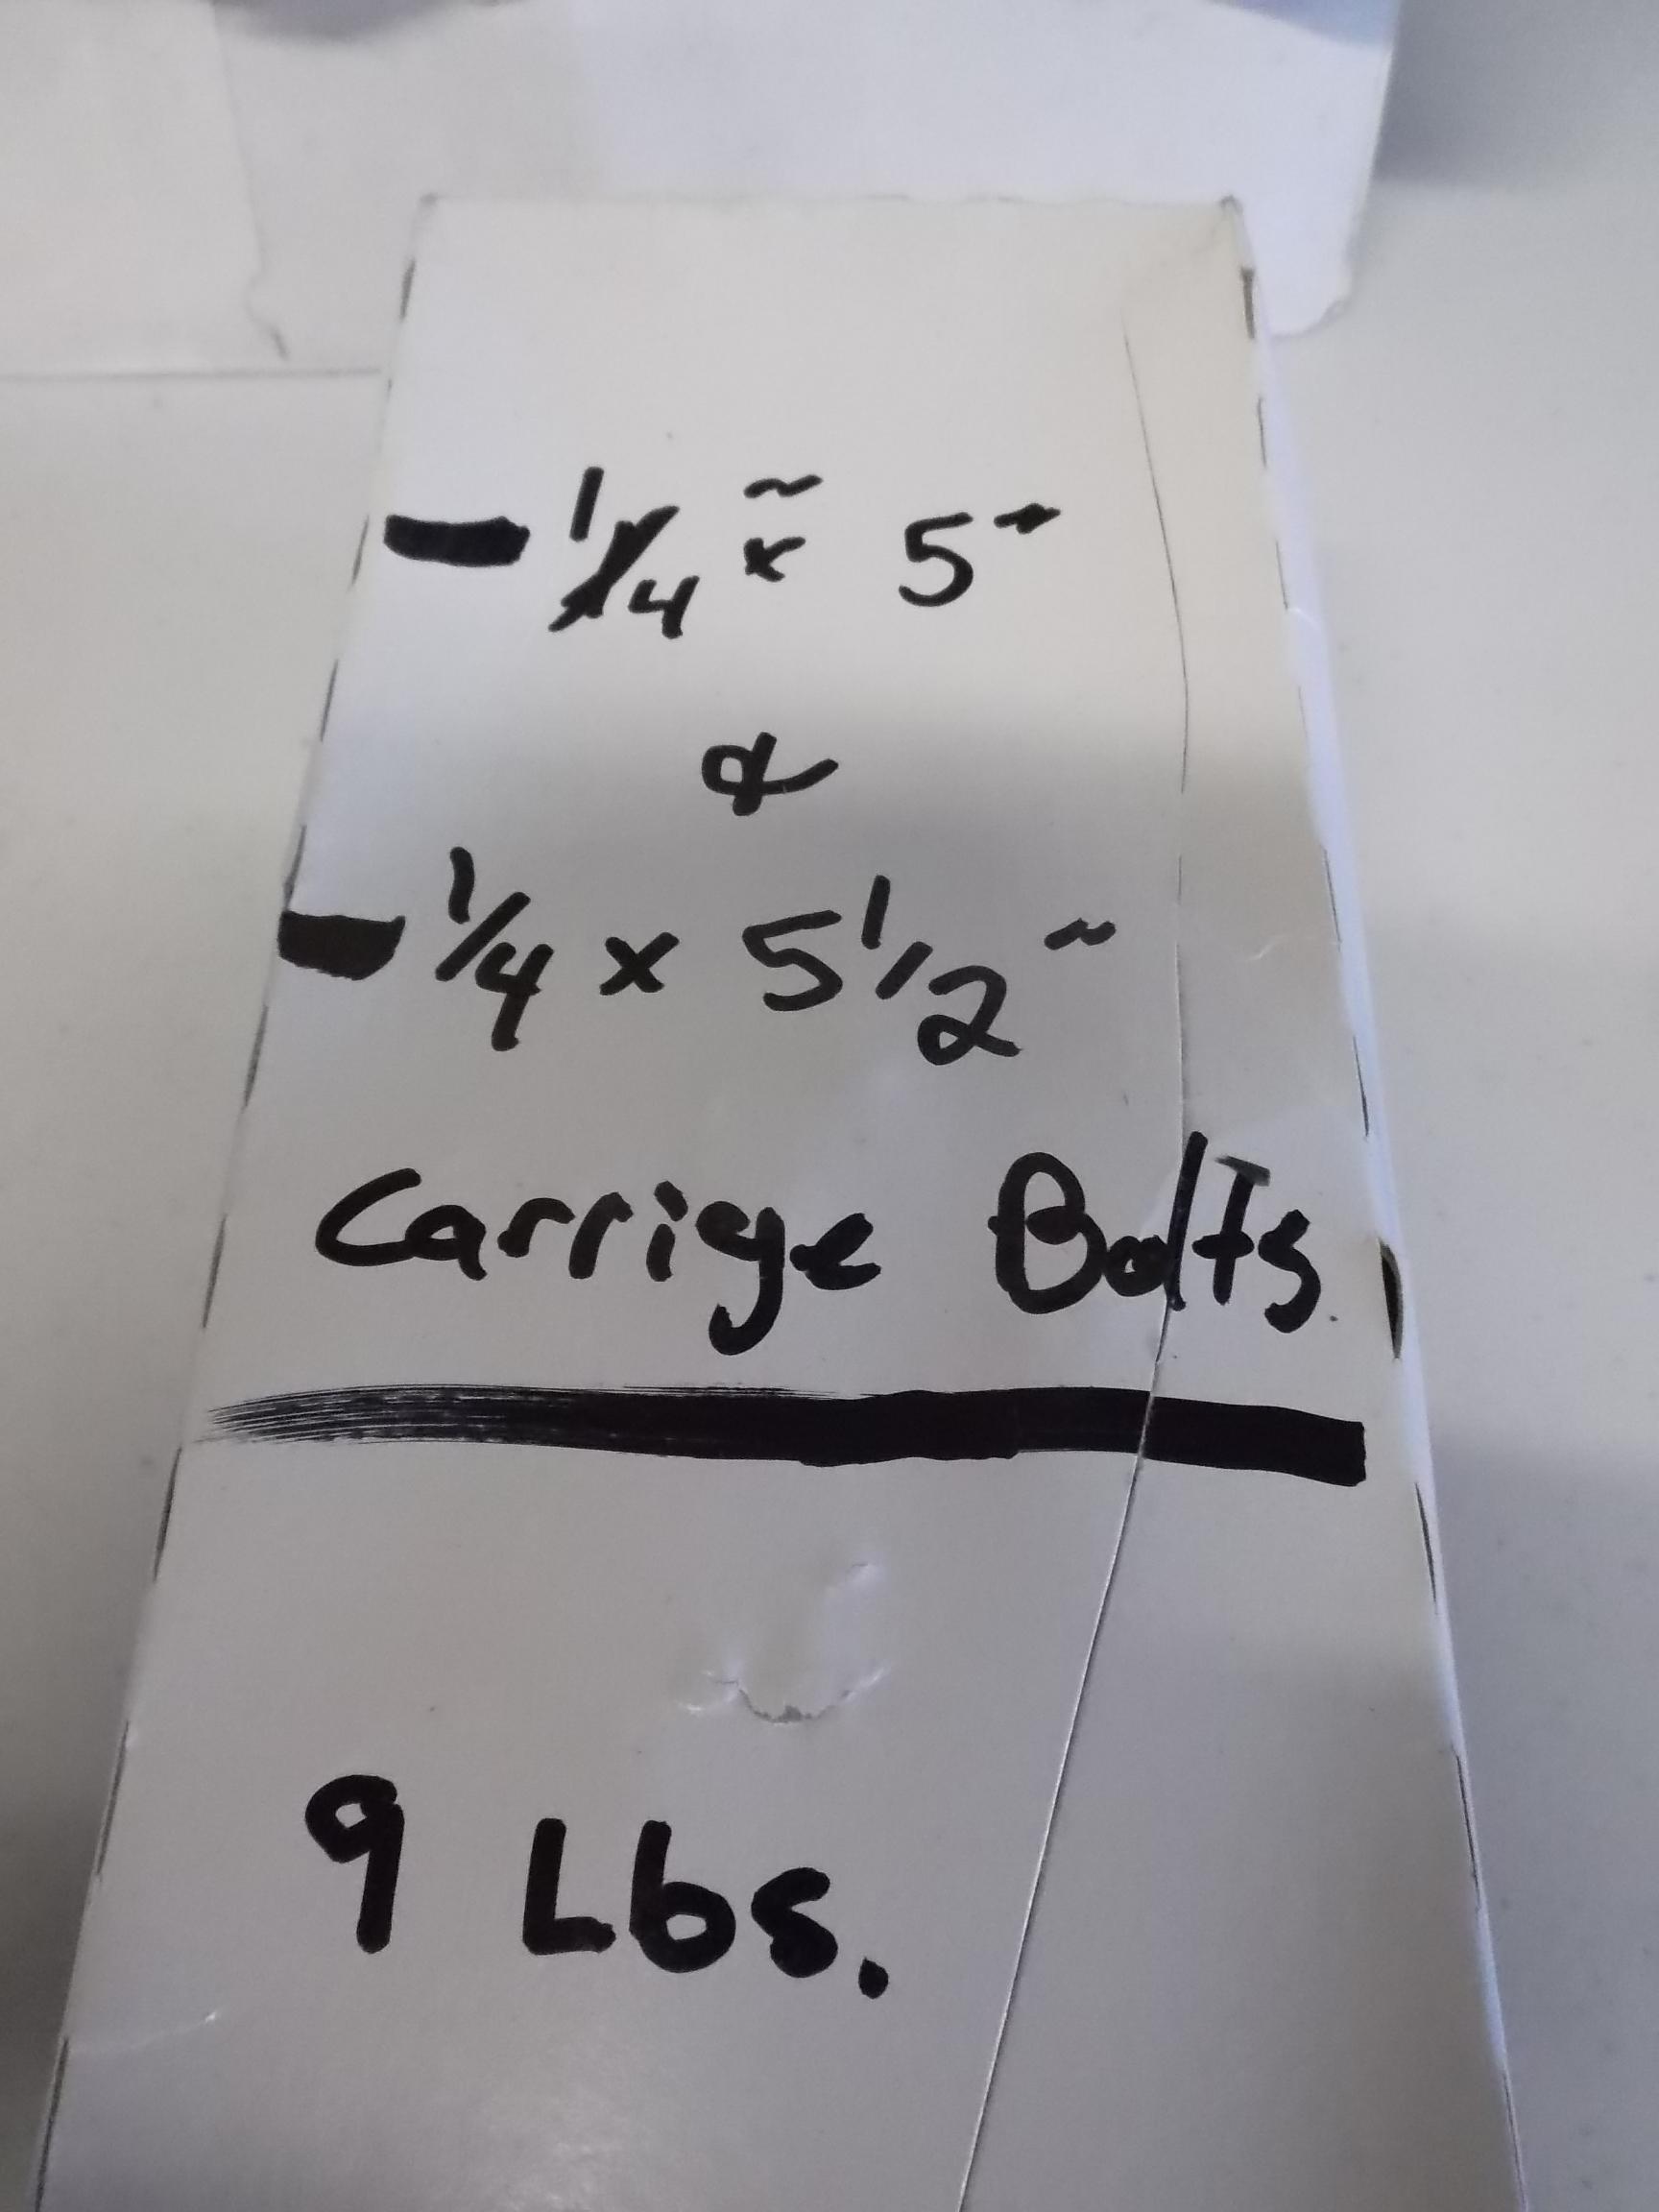 - 1/4" x 5"
&
- 1/4 x 5 1/2"
Carrige Bolts
9 Lbs.